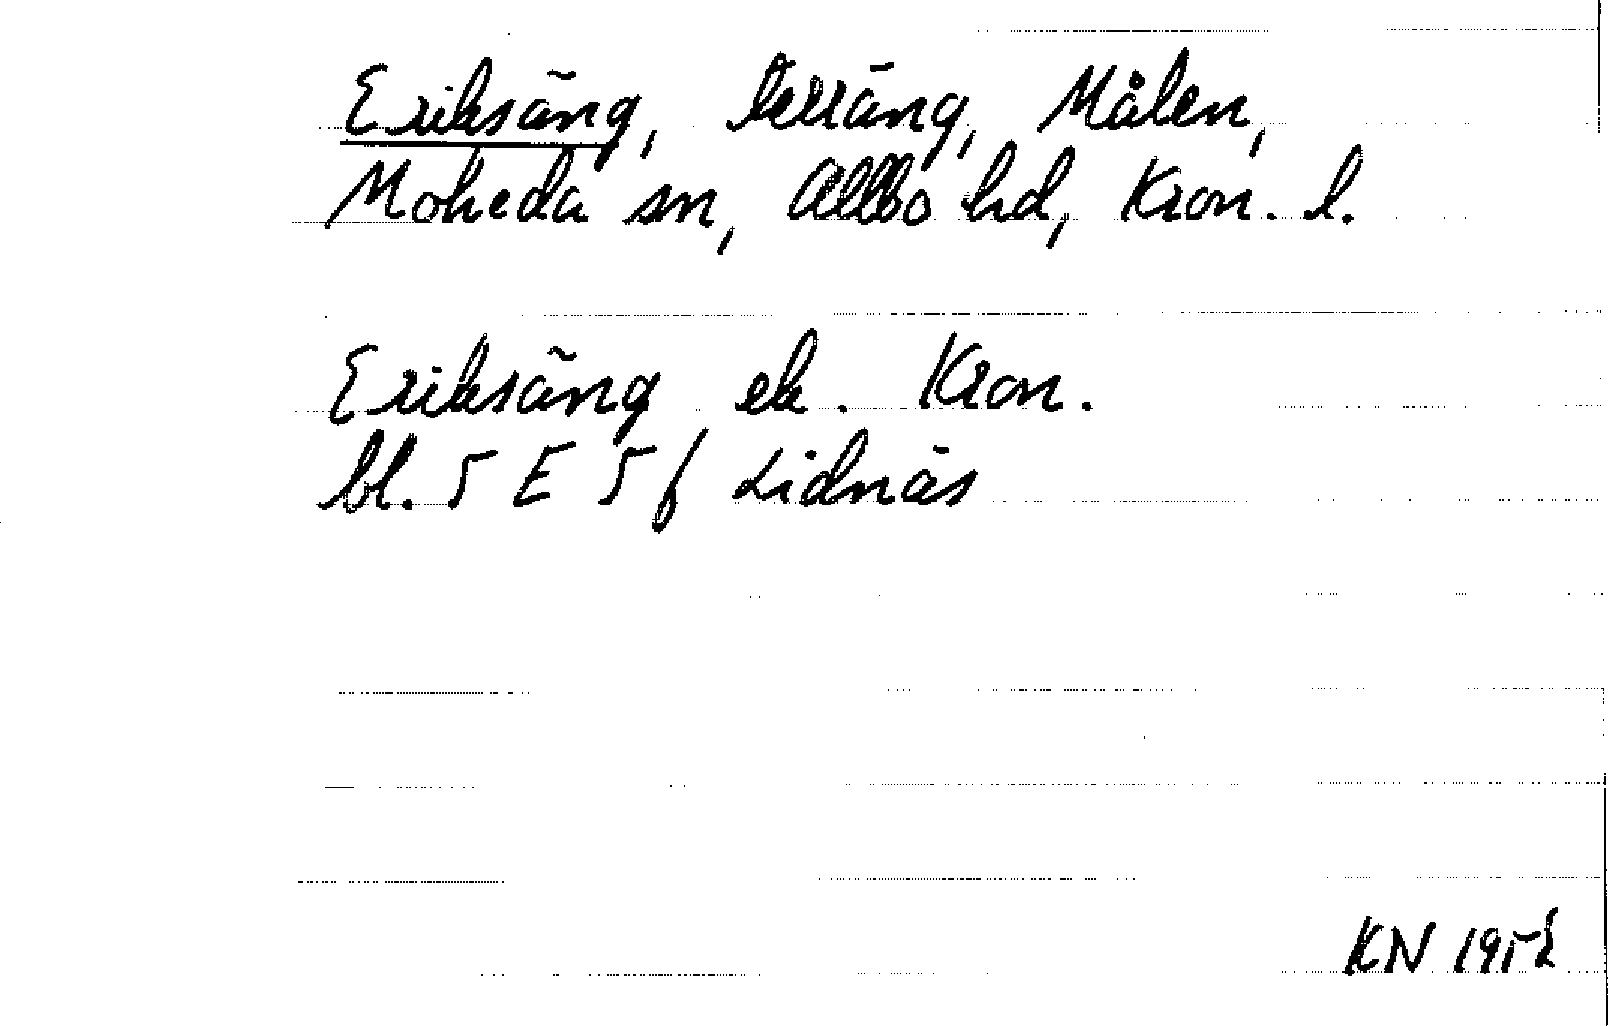 Eriksäng, terräng, Målen,
Moheda sn, Allbo hd, Kron. l.
Eriksäng ek. Kron.
bl. 5 E 5 f Lidnäs
KN